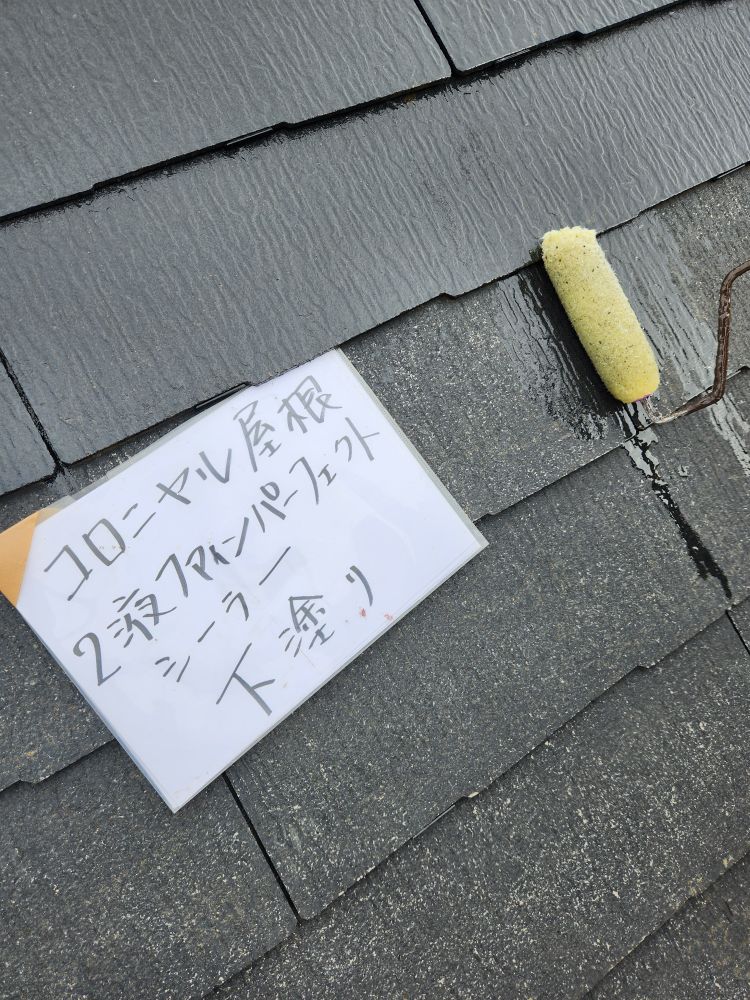 コロニヤル屋根
2液ファインパーフェクト
シーラー
下塗り